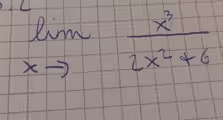 lim x³
x→ 2x² + 6